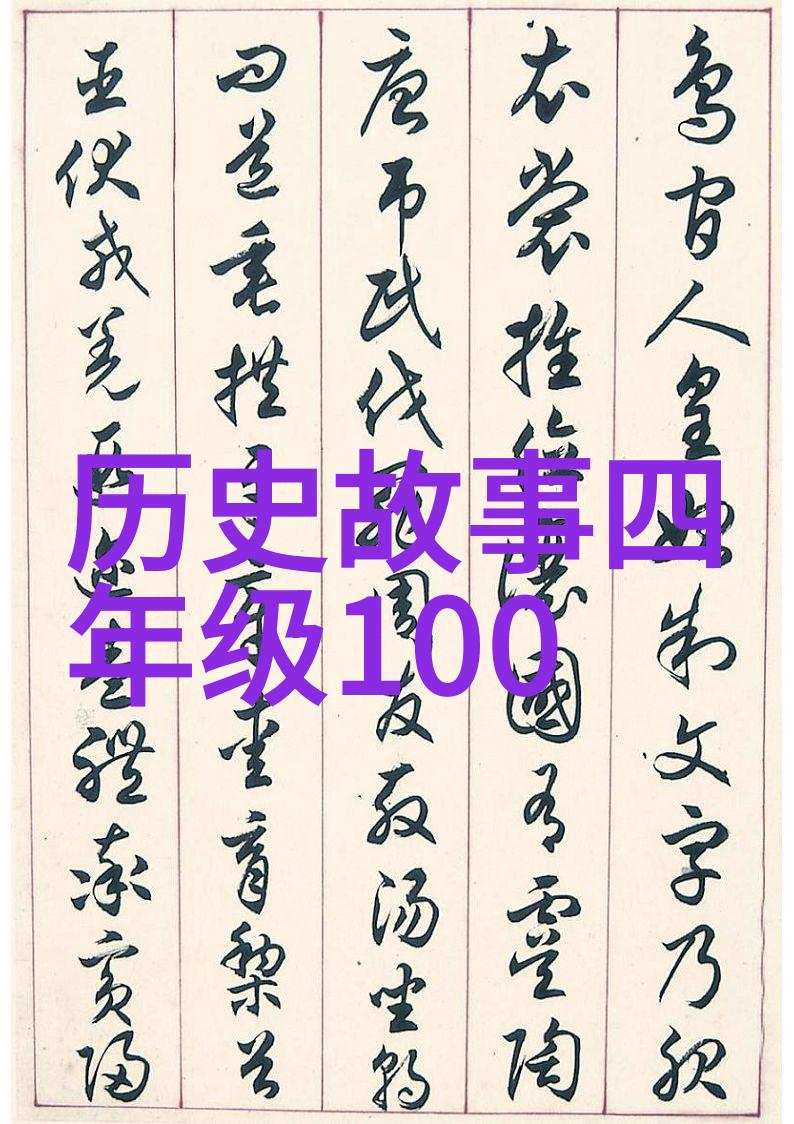 鳥官人皇始制文字乃服
衣裳推位讓國有虞陶
唐吊民伐罪周發殷湯坐朝
問道垂拱平章愛育黎首
臣伏戎羌遐邇壹體率賓歸
历史故事四
年级100